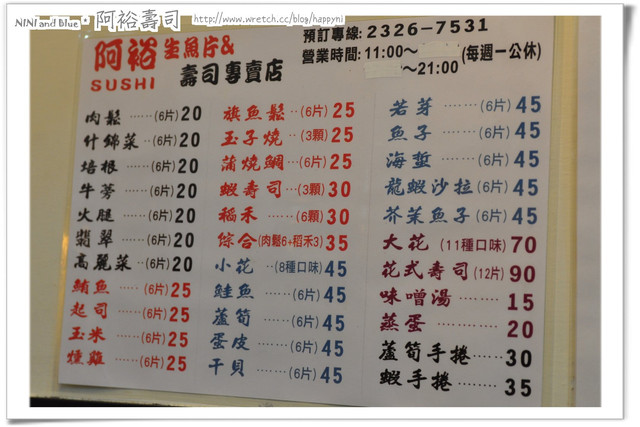 NINI and Blue • 阿裕壽司 http://www.wretch.cc/blog/happyni
阿裕 生魚片&
SUSHI 壽司專賣店
預訂專線: 2326-7531
營業時間: 11:00～ (每週一公休)
～21:00
肉鬆 ……(6片) 20
什錦菜 …(6片) 20
培根 ……(6片) 20
牛蒡 ……(6片) 20
火腿 ……(6片) 20
翡翠 ……(6片) 20
高麗菜 …(6片) 20
鮪魚 ……(6片) 25
起司 ……(6片) 25
玉米 ……(6片) 25
燻雞 ……(6片) 25
旗魚鬆 …(6片) 25
玉子燒 …(3顆) 25
蒲燒鯛 …(6片) 25
蝦壽司 …(3顆) 30
稻禾 ……(6顆) 30
綜合 (肉鬆6+稻禾3) 35
小花 …(8種口味) 45
鮭魚 ……(6片) 45
蘆筍 ……(6片) 45
蛋皮 ……(6片) 45
干貝 ……(6片) 45
若芽 ……(6片) 45
魚子 ……(6片) 45
海蜇 ……(6片) 45
龍蝦沙拉 (6片) 45
芥茉魚子 (6片) 45
大花 (11種口味) 70
花式壽司 (12片) 90
味噌湯 …… 15
蒸蛋 …… 20
蘆筍手捲 …… 30
蝦手捲 …… 35